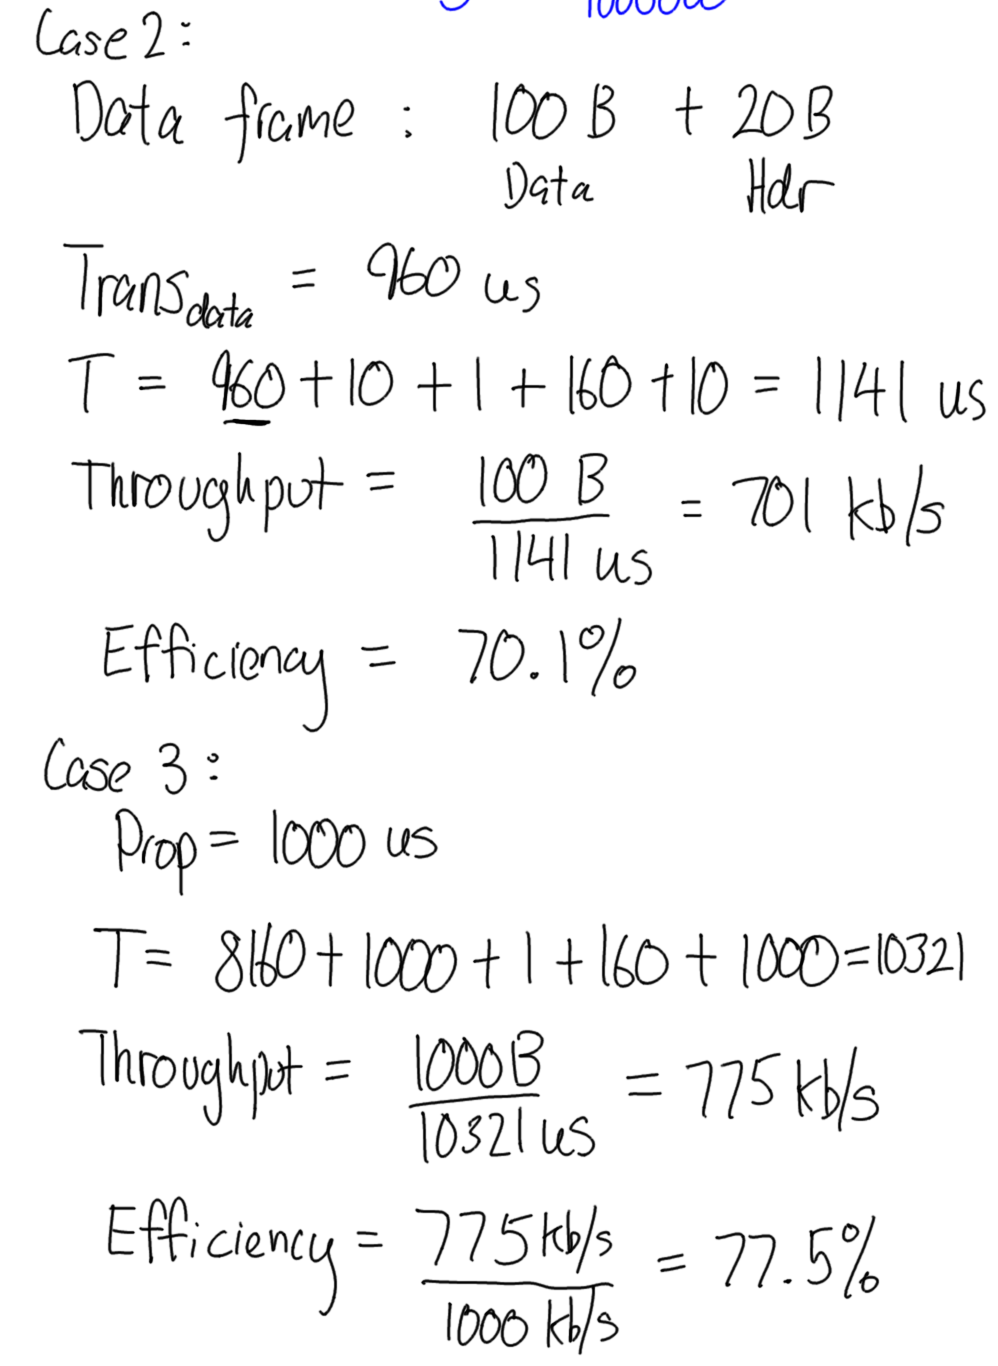 Case 2:
Data frame : 100 B + 20 B
Data Hdr
Trans data = 960 us
T = 960 + 10 + 1 + 160 + 10 = 1141 us
Throughput = 100 B / 1141 us = 701 kb/s
Efficiency = 70.1%
Case 3:
Prop = 1000 us
T = 8160 + 1000 + 1 + 160 + 1000 = 10321
Throughput = 1000B / 10321 us = 775 kb/s
Efficiency = 775 kb/s / 1000 kb/s = 77.5%